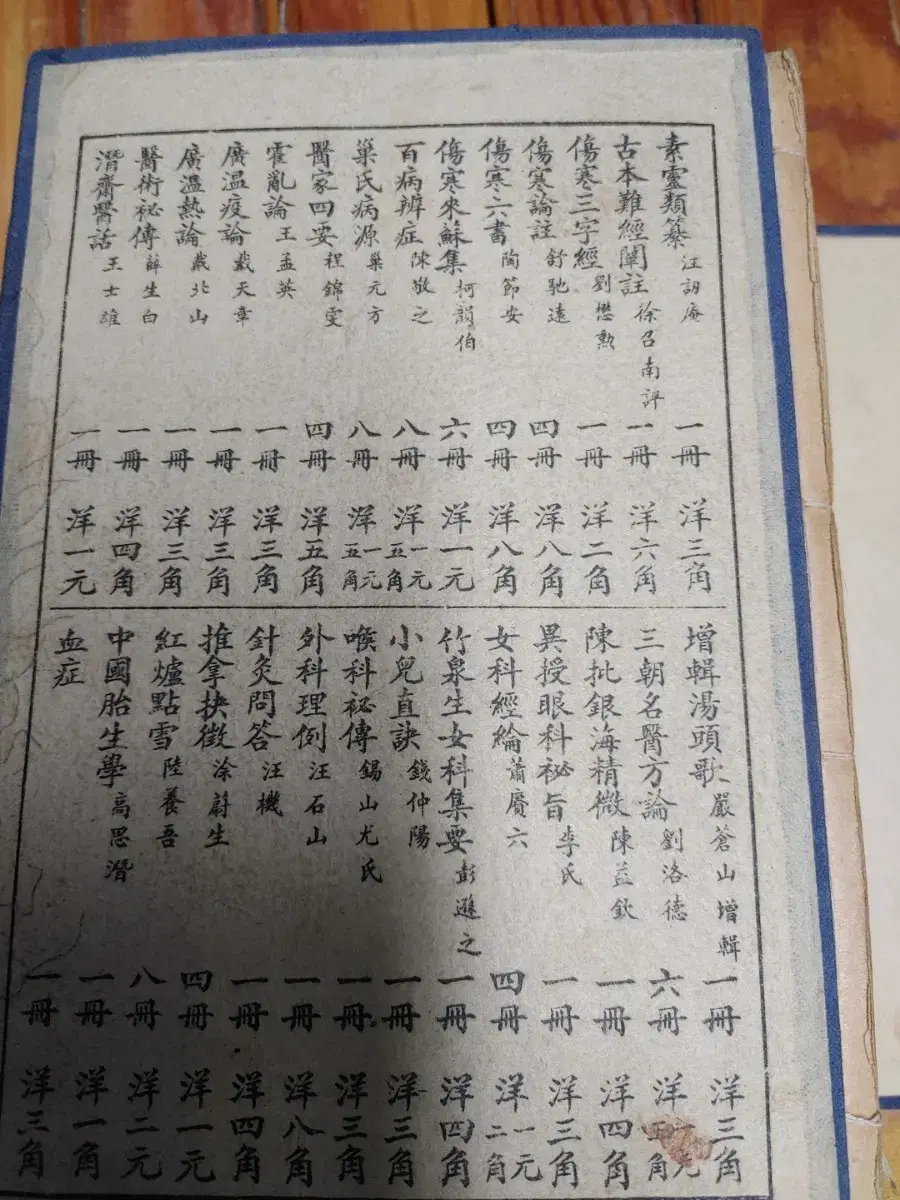 素靈類纂 汪訒庵 一冊 洋三角
古本難經闡註 徐召南評 一冊 洋六角
傷寒三字經 劉懋勲 一冊 洋二角
傷寒論註 舒馳遠 四冊 洋八角
傷寒六書 陶節安 四冊 洋八角
傷寒來蘇集 柯韻伯 六冊 洋一元
百病辨症 陳敬之 八冊 洋一元五角
巢氏病源 巢元方 八冊 洋一元五角
醫家四要 程錦雯 四冊 洋五角
霍亂論 王孟英 一冊 洋三角
廣温疫論 戴天章 一冊 洋三角
廣温熱論 戴北山 一冊 洋三角
醫術祕傳 薛生白 一冊 洋四角
潛齋醫話 王士雄 一冊 洋一元
增輯湯頭歌 嚴蒼山增輯 一冊 洋三角
三朝名醫方論 劉洛德 六冊 洋一元五角
陳批銀海精微 陳益欽 一冊 洋四角
異授眼科祕旨 李氏 一冊 洋三角
女科經綸 蕭賡六 四冊 洋一元二角
竹泉生女科集要 彭遜之 一冊 洋四角
小兒直訣 錢仲陽 一冊 洋三角
喉科祕傳 錫山尤氏 一冊 洋三角
外科理例 汪石山 一冊 洋八角
針灸問答 汪機 一冊 洋四角
推拿抉微 涂蔚生 四冊 洋一元
紅爐點雪 陸養吾 八冊 洋二元
中國胎生學 高思潛 一冊 洋一角
血症 一冊 洋三角